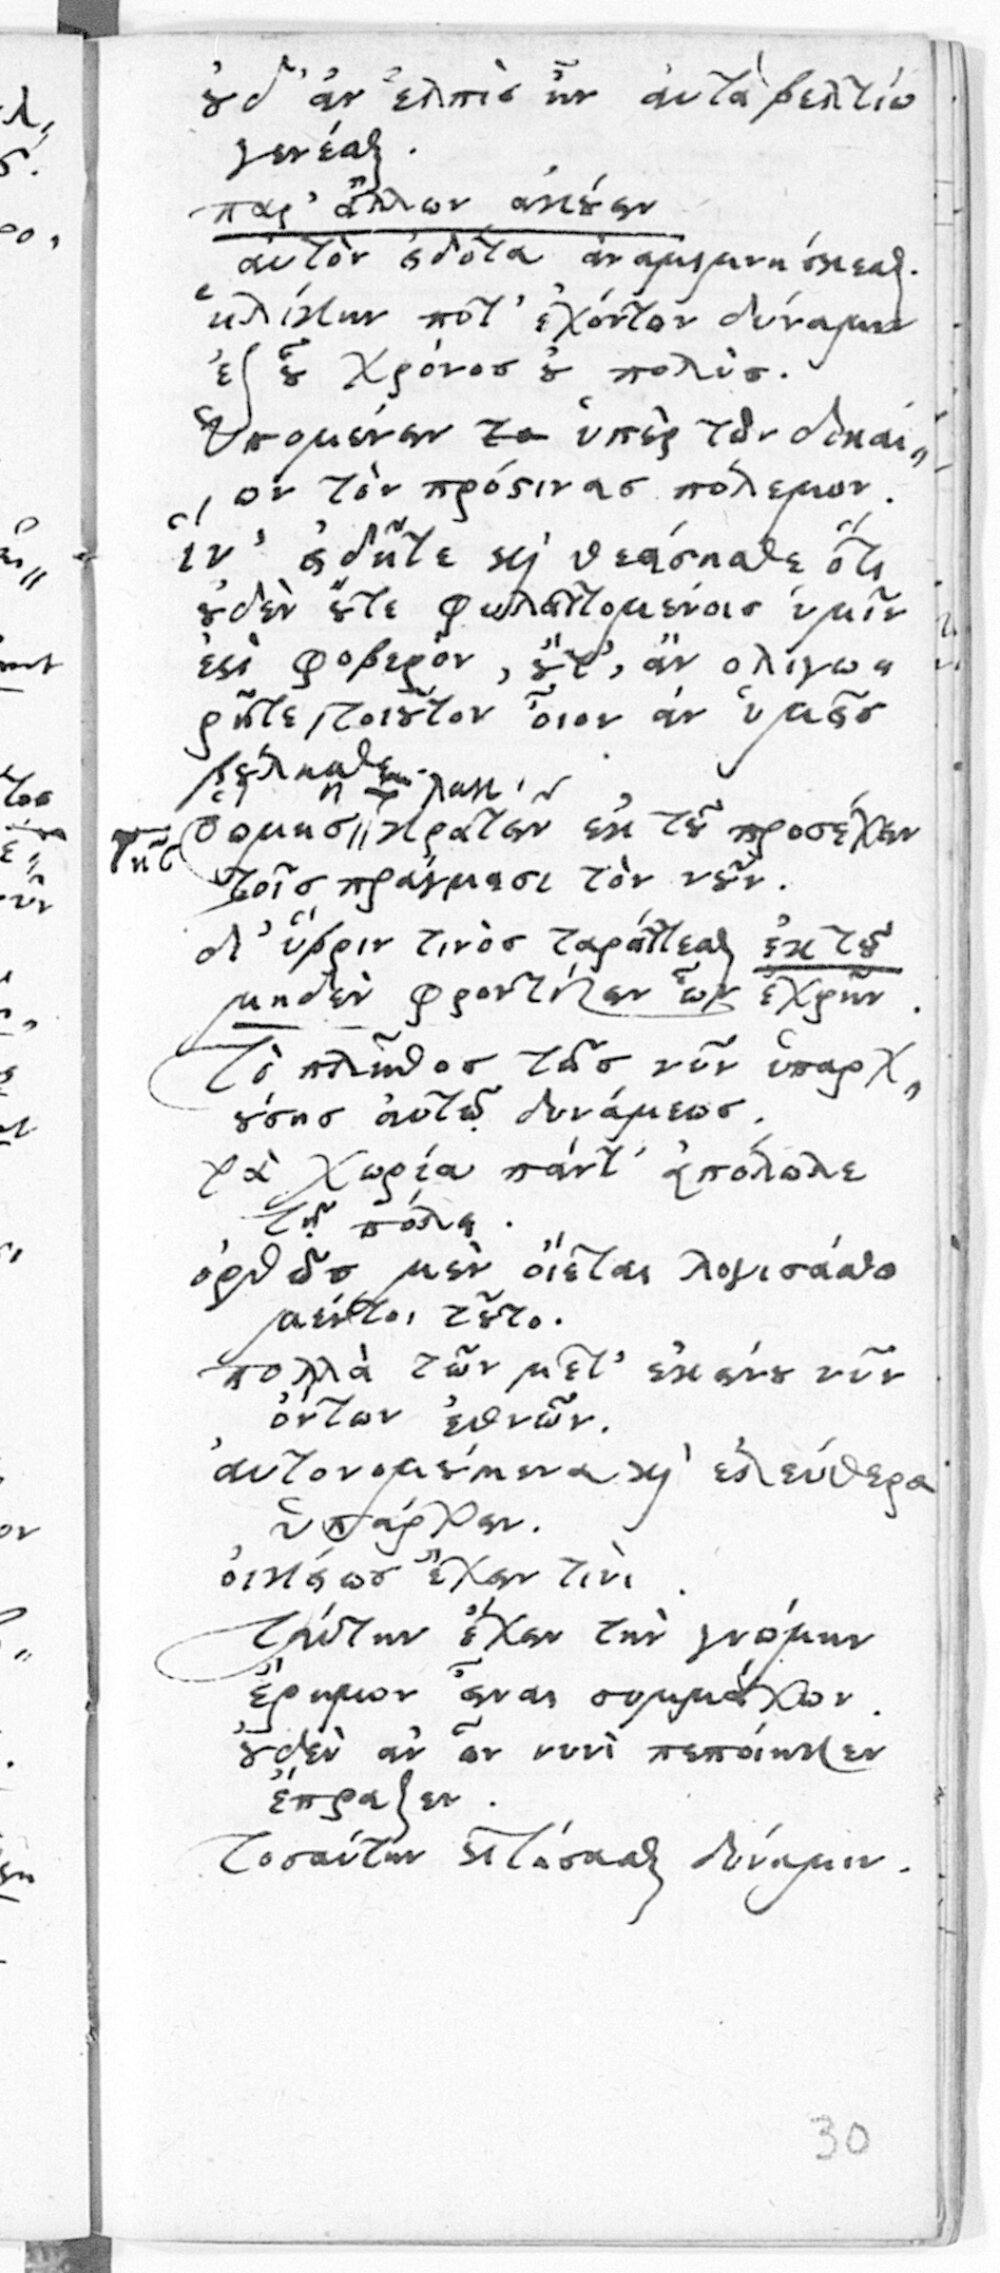 ȣδ' ἀν ἐλπὶσ ἦν ἀυτὰ βελτίω
γενέσθαι.
παρ' ἄλλων ἀκȣ́ειν
αὐτὸν ειδότα ἀναμιμνησκεσθαι.
ἡλίκην ποτ' ἐχόντων δύναμιν
ἐξ ȣ͗͂ χρόνοσ ȣ̓ πολὺσ.
Ὑπομένειν ὑπὲρ τῶν δικαί„
„ων τὸν πρὸσ πόλεμον.
ἵν' ειδῆτε καὶ θεάσησθε ὅτι
ȣδὲν ȣ̓́τε φυλαττομένοισ ὑμῖν
ἐστὶ φοβερὸν, ȣ̓́τ', ἂν ολιγωυ
ρῆτε, τοιȣ͂τον ὅιον ἀν ὑμεῖσ
βȣ́λησθε.
ῥώμησ κρατεῖν ἐκ τȣ͂ προσέχειν
τοῖσ πράγμασι τὸν νȣ͂ν.
δι' ὕβριν τινὸσ ταράττεσθαι ἐκ τȣ͂
μηδὲν φροντίζειν ὧν ἐχρῆν.
Τὸ πλῆθοσ τῆσ νῦν ὑπαρχ„
ȣ́σησ ἀυτῷ δυνάμεωσ.
τὰ χωρία πάντ' ἀπόλωλε
τῇ πόλει.
ὀρθῶσ μὲν ὄιεται λογισάσθω
μέντοι τȣ͂το.
πολλὰ τῶν μετ' ἐκείνȣ νῦν
ὄντων ἐθνῶν.
ἀυτονομȣ́μενα καὶ ἐλεύθερα
ὑπάρχειν.
οἰκείωσ ἔχειν τινὶ.
ταύτην ἔχειν τὴν γνώμην
ἔρημον ειναι συμμάχων.
ȣ̓δὲν ἀν ὧν νυνὶ πεποίηκεν
ἔπραξεν.
τοσαύτην κτήσασθαι δύναμιν.
30